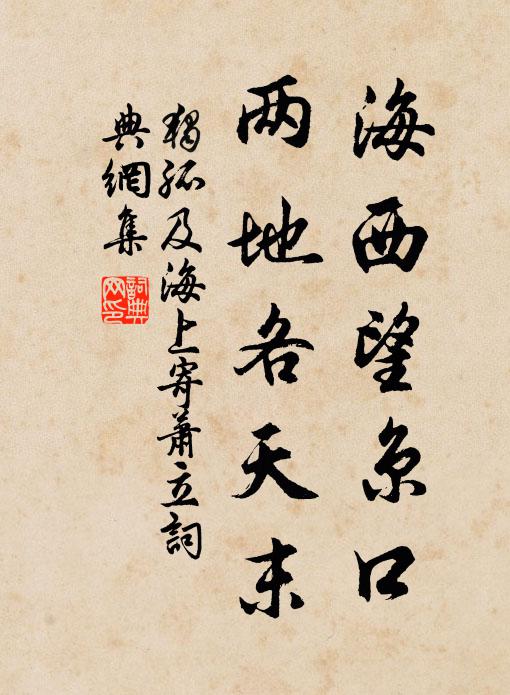 海西望京口
两地各天末
独孤及海上寄萧立詞
典網集
詞典网印